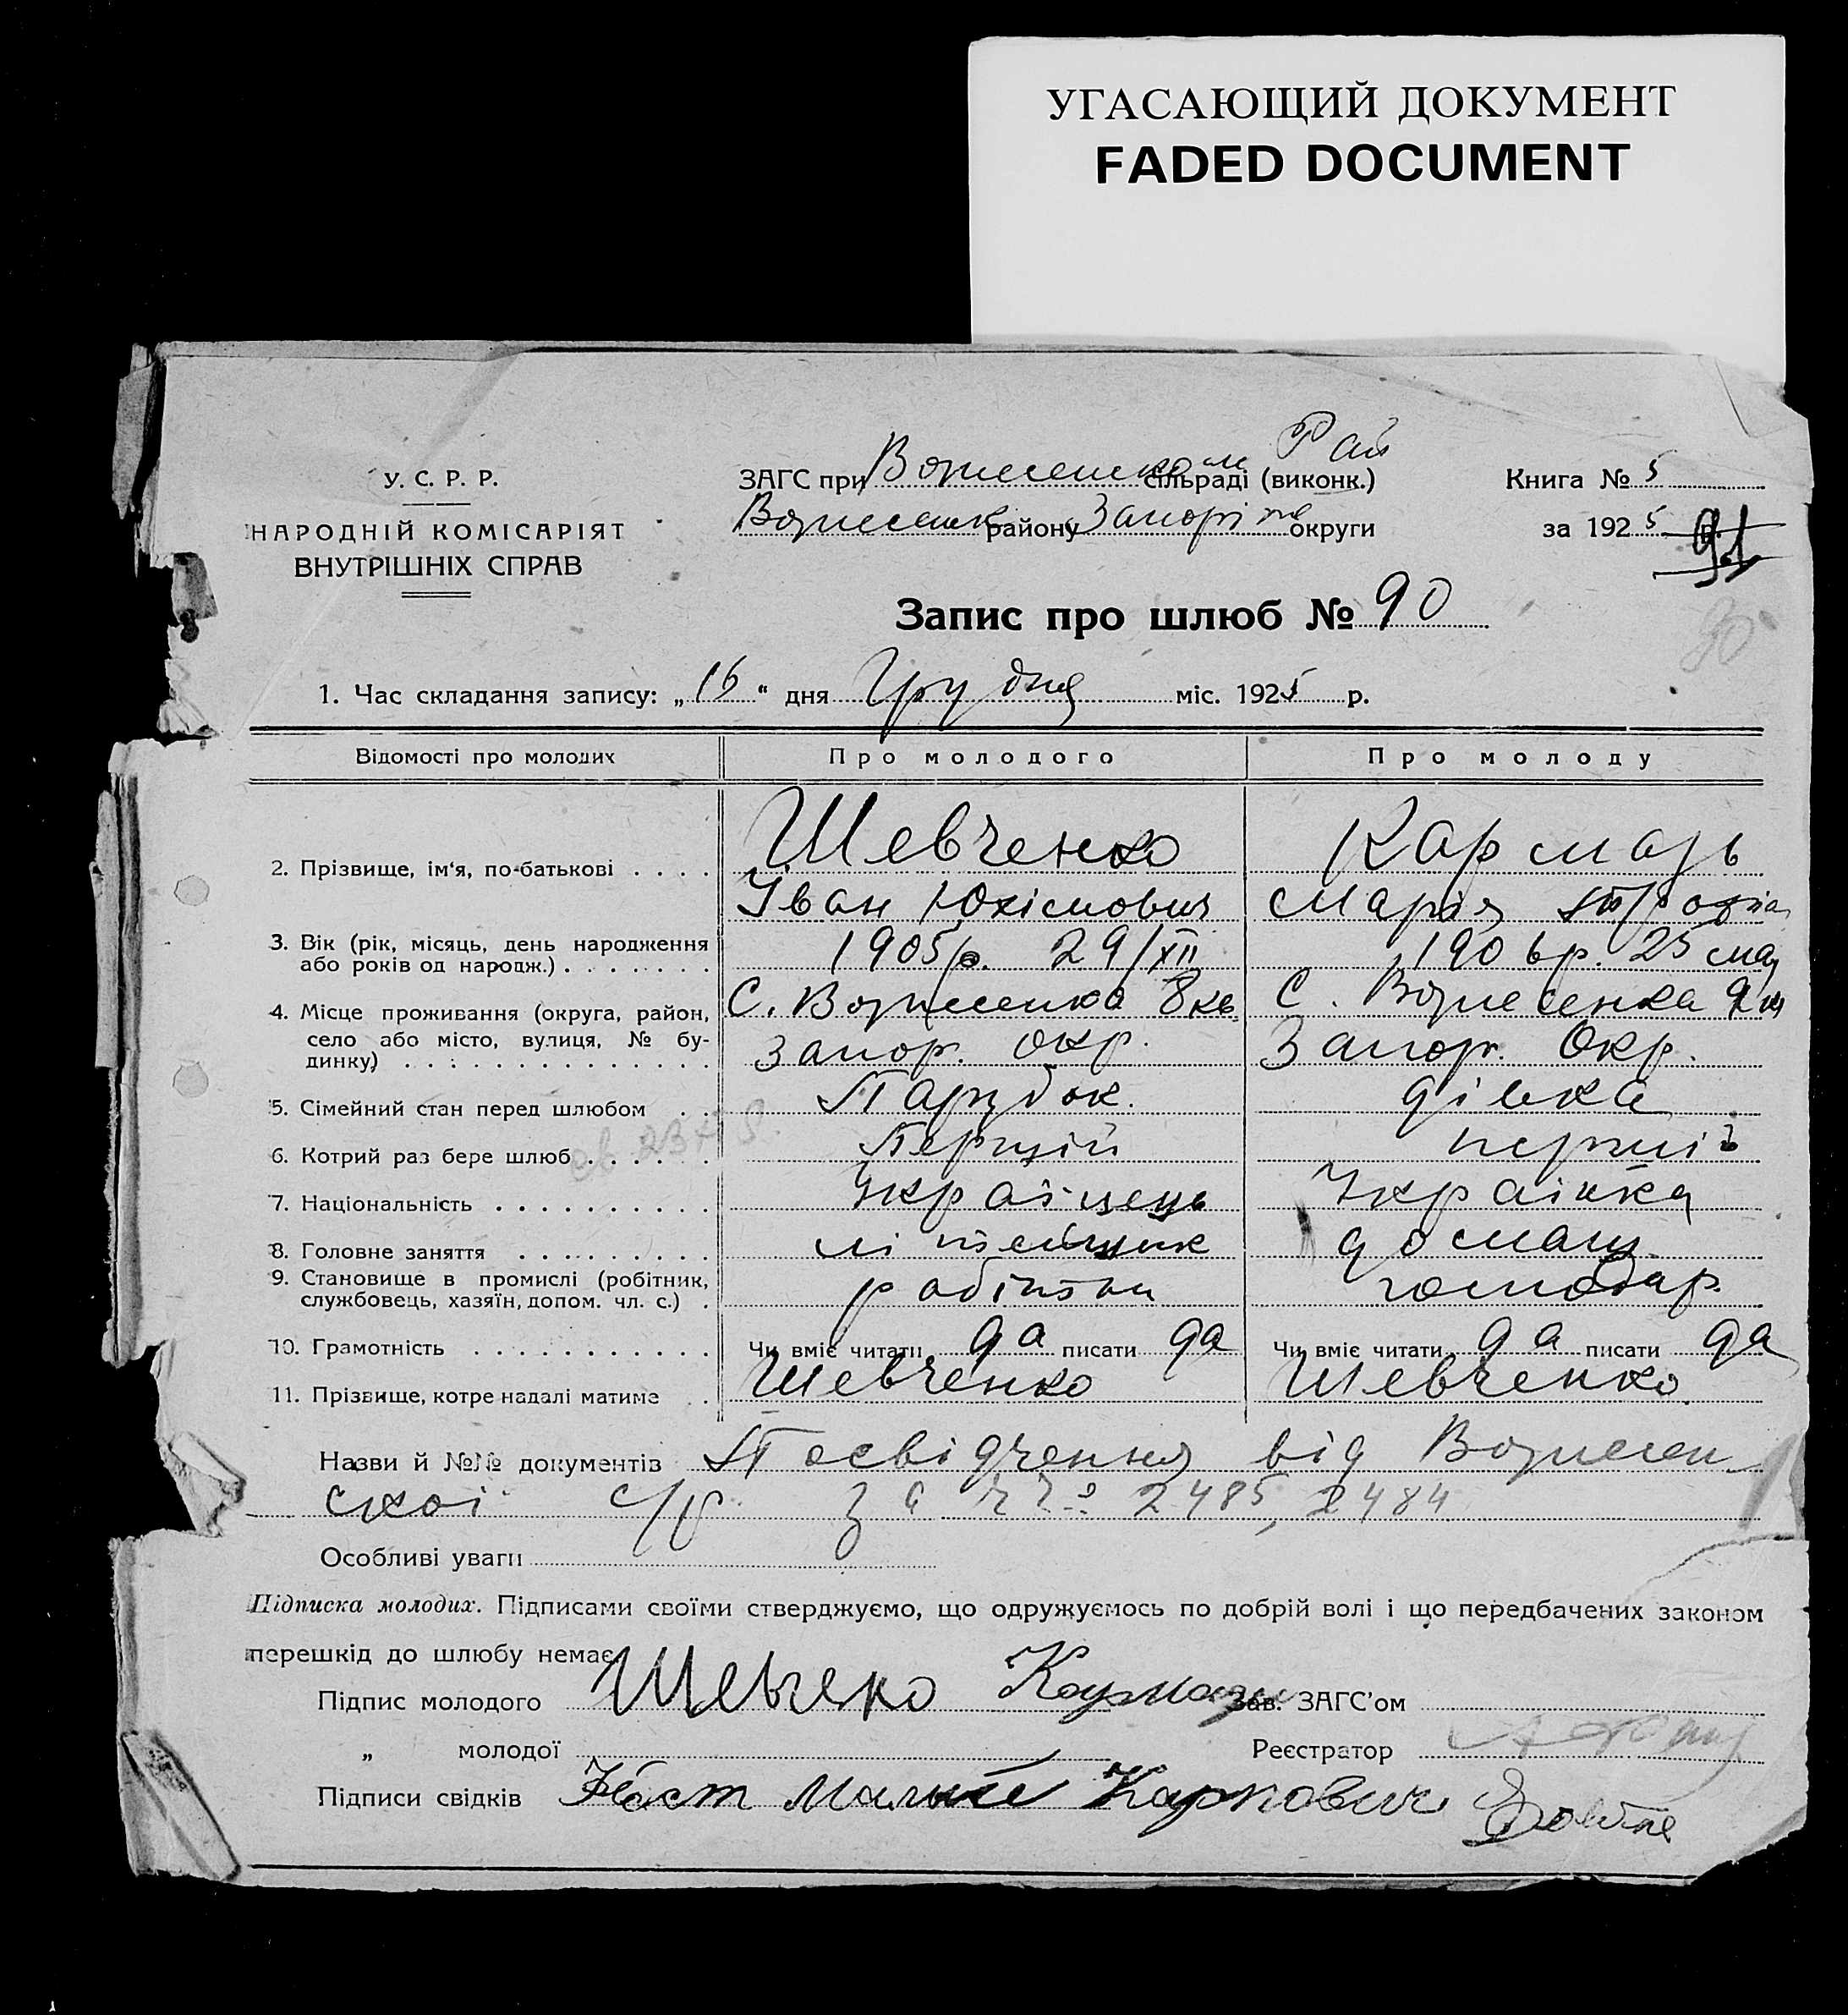 УГАСАЮЩИЙ ДОКУМЕНТ
FADED DOCUMENT
У. С. Р. Р.
НАРОДНІЙ КОМІСАРІЯТ
ВНУТРІШНІХ СПРАВ
ЗАГС при Вознесенском сільраді (виконк.) Рай
Вознесенск району Запоріж округи
Книга № 5
за 1925 р.
91
Запис про шлюб № 90
90
1. Час складання запису: „16“ дня Грудня міс. 1925 р.
Відомості про молодих Про молодого Про молоду
2. Прізвище, ім'я, по-батькові . . . . Шевченко Кармазь
Іван Юхімович Марія
3. Вік (рік, місяць, день народження або років од народж.) . . . . . . . 1905р. 29/XII 1906р. 25 мая
4. Місце проживання (округа, район, село або місто, вулиця, № будинку) . . . . . . . . . . . . . . С. Вознесенка 8кв С. Вознесенка
Запор. окр. Запор. Окр.
5. Сімейний стан перед шлюбом . . Парубок. дівка
6. Котрий раз бере шлюб . . . . . . Перший перший
7. Національність . . . . . . . . . . Українець Українка
8. Головне заняття . . . . . . . . . домаш.
9. Становище в промислі (робітник, службовець, хазяїн, допом. чл. с.) . робітни господар.
10. Грамотність . . . . . . . . . . . Чи вміє читати да писати да Чи вміє читати да писати да
11. Прізвище, котре надалі матиме . Шевченко Шевченко
Назви й №№ документів Посвідчення від Вознесен
скої с/р за № 2485, 2484
Особливі уваги
Підписка молодих. Підписами своїми стверджуємо, що одружуємось по добрій волі і що передбачених законом
перешкід до шлюбу немає
Підпис молодого Шевчеко Кармазь Зав. ЗАГС'ом
„ молодої Реєстратор
Підписи свідків Карпович